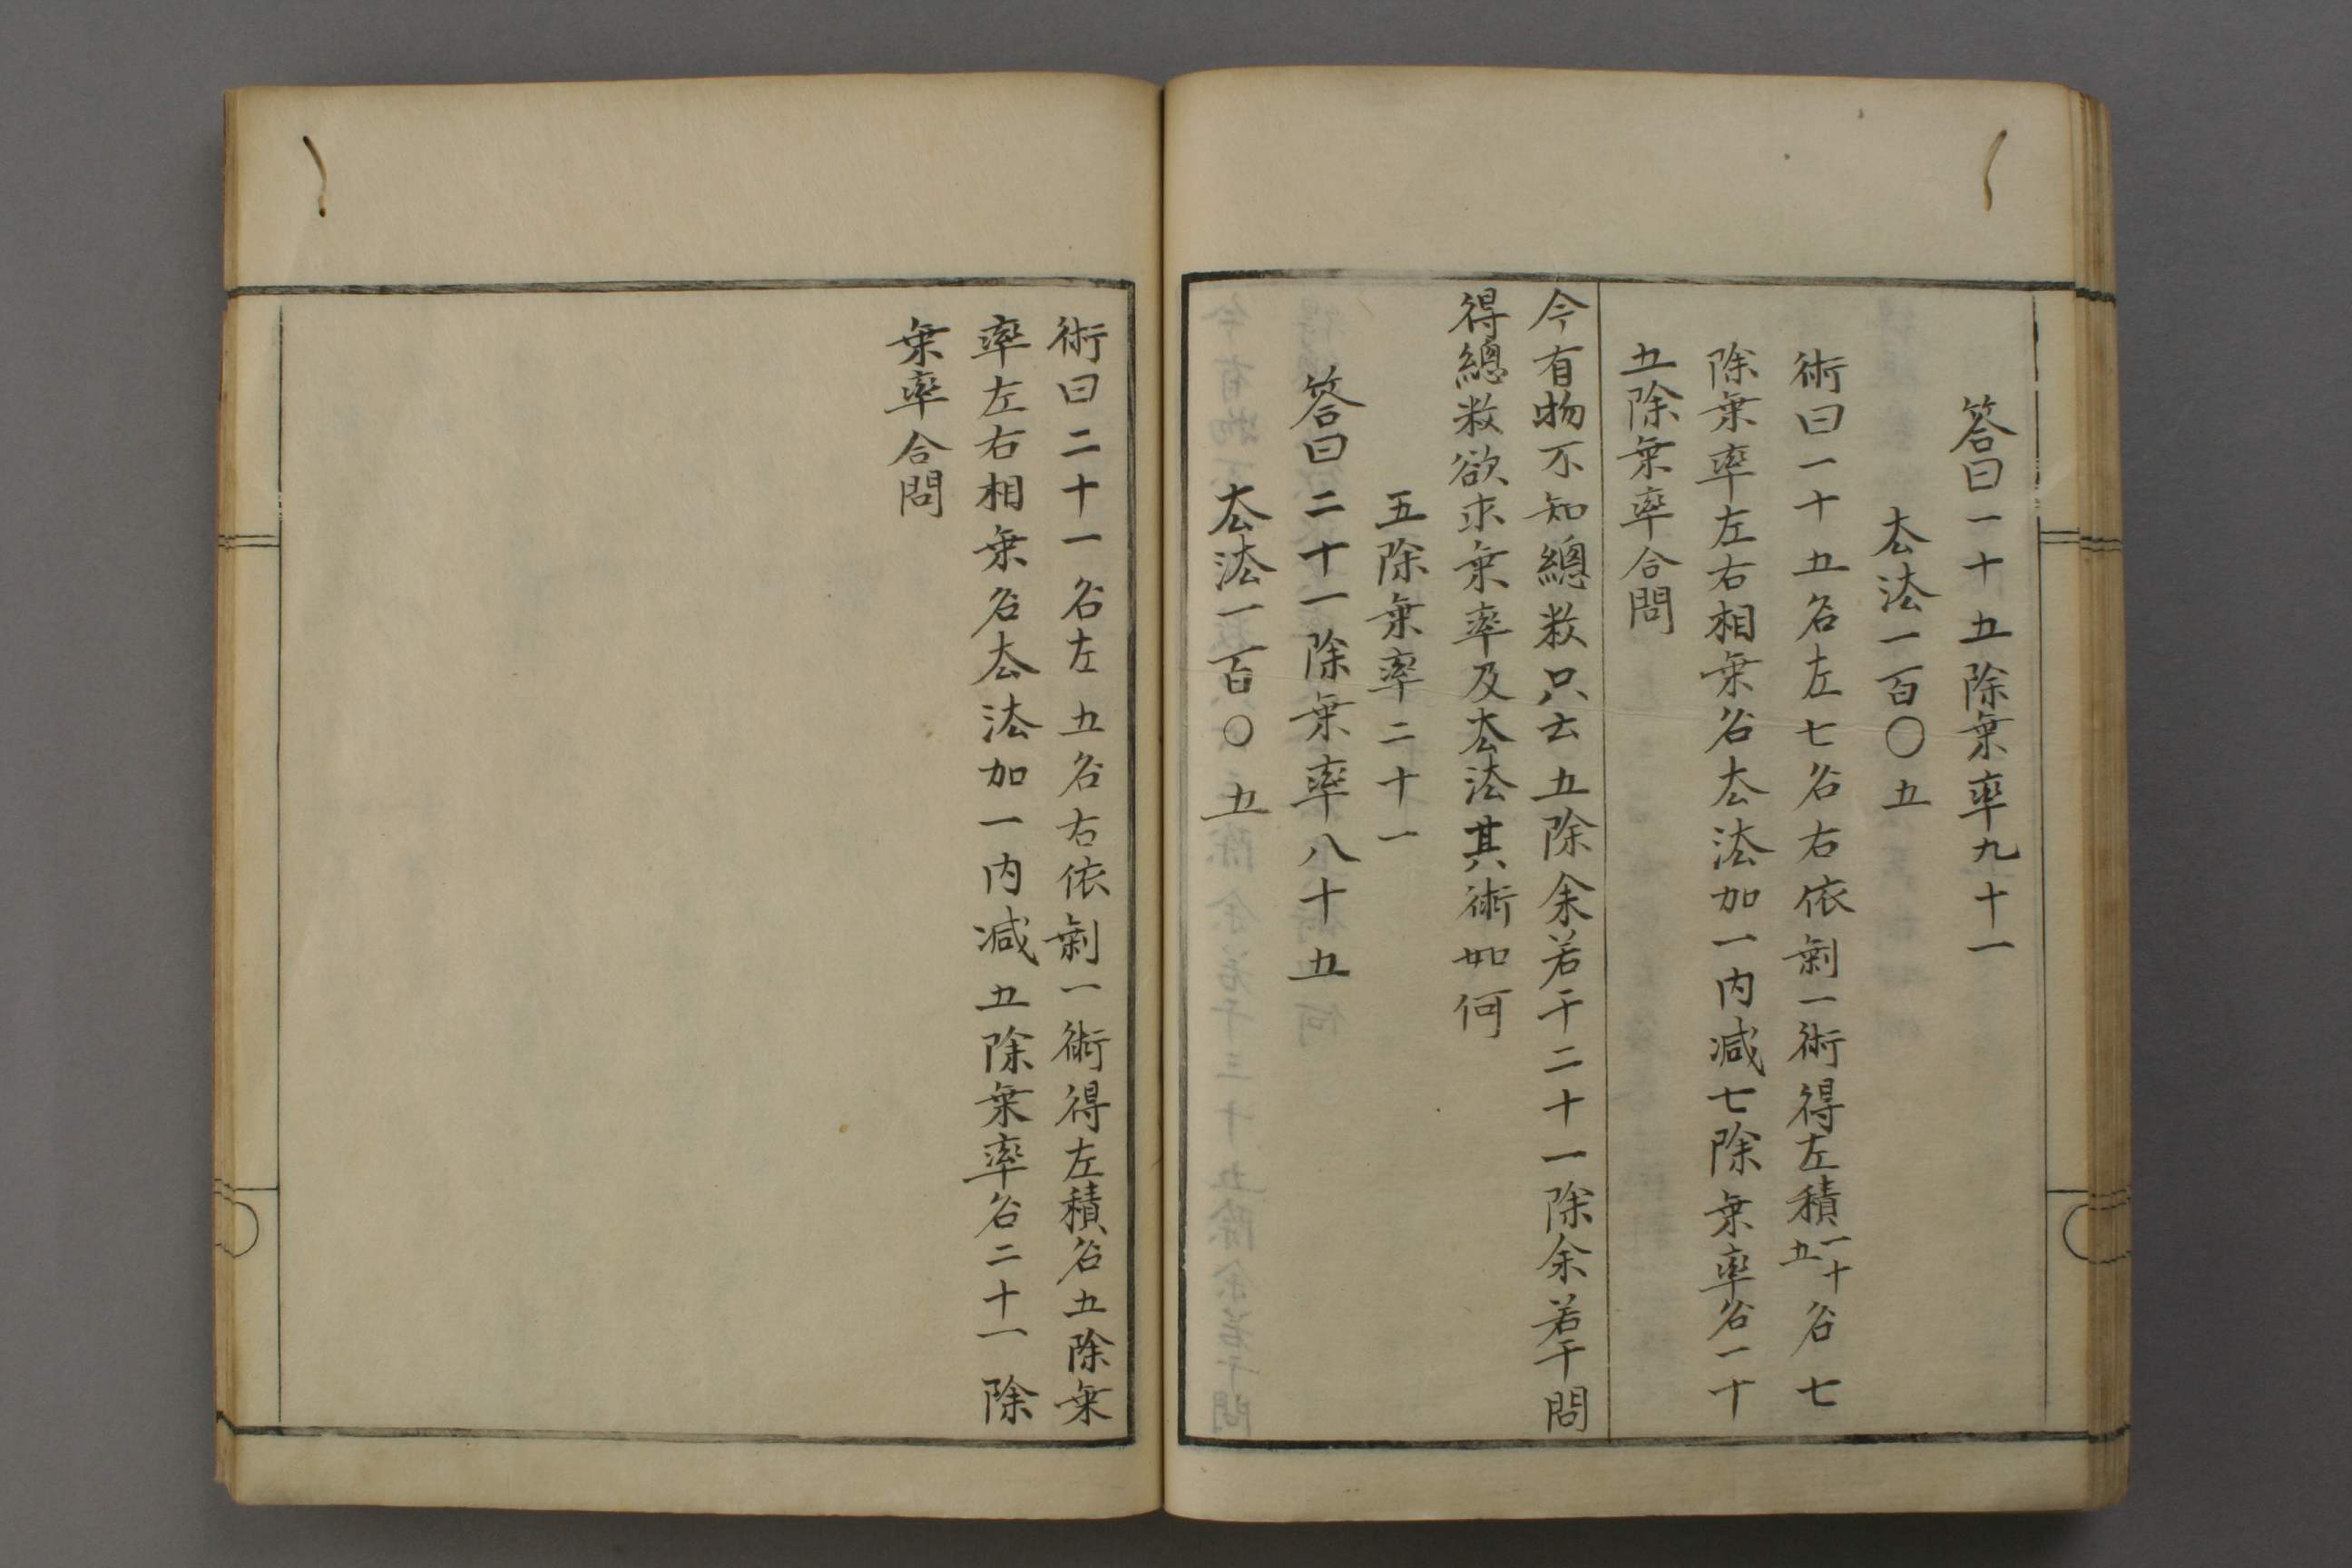 答曰一十五除乗率九十一
去法一百〇五
術曰一十五名左七名右依剰一術得左積一十五名七
除乗率左右相乗名去法加一内减七除乗率名一十
五除乗率合問
今有物不知總数只云五除余若干二十一除余若干問
得總数欲求乗率及去法其術如何
五除乗率二十一
答曰二十一除乗率八十五
去法一百〇五
術曰二十一名左五名右依剰一術得左積名五除乗
率左右相乗名去法加一内减五除乗率名二十一除
乗率合問